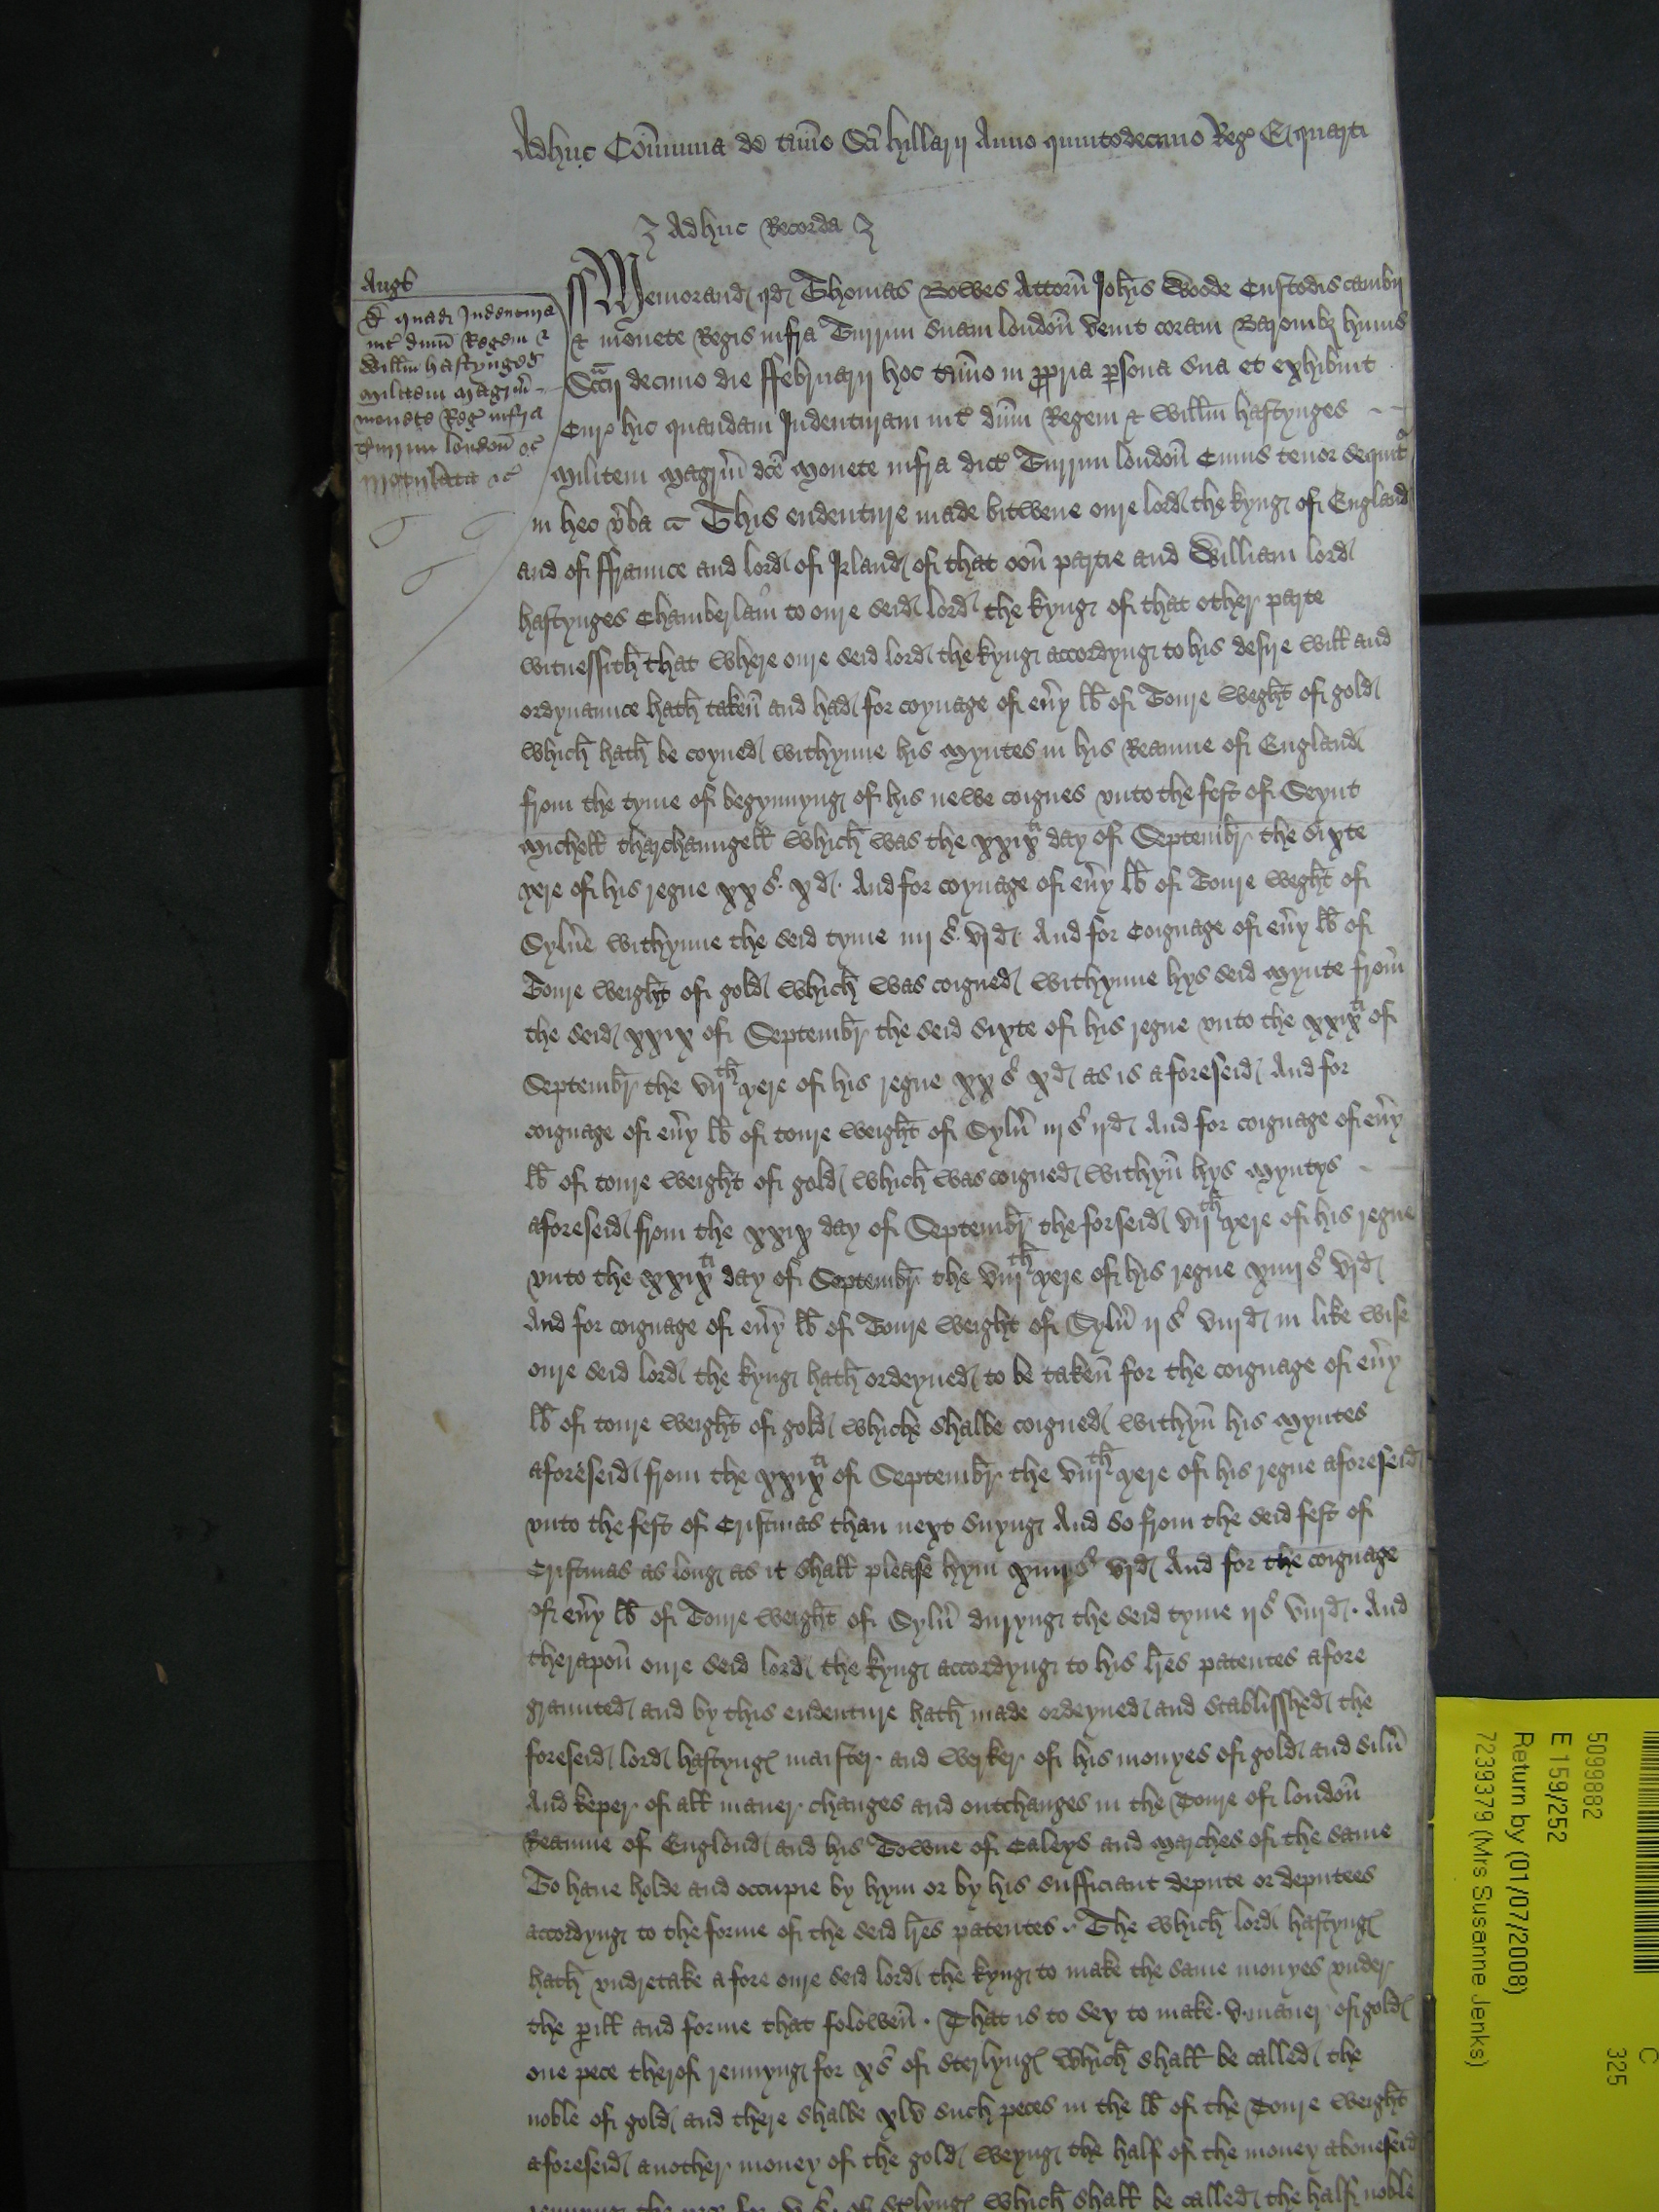 Adhuc Com̄unia de t'mio Sc̄i hyllarij Anno quintodecimo Reg' E quarti
Adhuc Recorda
Angƚ
D' quad' Indentura
int' dn̄m Regem &
Willm̄ hastynges
militem Magr̄m
monete Reg' infra
Turrim londoñ &c'
irrotulata &c'
Memorand' qd' Thomas Bowes Attorn̄ Joh̄is Woode Custodis cambij
& monete Regis infra Turrim suam londoñ venit coram Baronibȝ huius
Scc̄ij decimo die ffebruarij hoc t'mio in propria p'sona sua et exhibuit
Cur' hic quandam Indenturam int' dn̄m Regem & Willm̄ hastynges
militem Magr̄m dc̄e monete infra dict' Turrim londoñ Cuius tenor sequit'
in hec v'ba ss This endenture made bitwene oure lord the kyng of England
and of ffraunce and lord of Irland of that oon̄ partie and William lord
hastynges Chamberlain to oure seid lord the kyng of that other parte
witnessith that where oure seid lord the kyng accordyng to his desire will and
ordynaunce hath taken̄ and had for coynage of eu'y lb̄ of Toure weght of gold
which hath be coyned withynne his myntes in his Reaume of England
from the tyme of begynnyng of his newe coignes vnto the fest of Seynt
Michell tharchaungell which was the xxixti day of Septembr' the sixte
yere of his regne xx s' x d' And for coynage of eu'y lb̄ of Toure weght of
Sylu'e withynne the seid tyme iiij s' vj d' And for Coignage of eu'y lb̄ of
Toure weight of gold which was coigned withynne hys seid mynte from
the seid xxix of Septembr' the seid sixte of his regne vnto the xxixti of
Septembr' the vijth yere of his regne xx s' x d' as is aforeseid And for
coignage of eu'y lb̄ of toure weight of Sylu' iij s' ij d' And for coignage of eu'y
lb̄ of toure weight of gold which was coigned withyn̄ hys Myntys
aforeseid from the xxix day of Septembr' the forseid vijth yere of his regne
vnto the xxixti day of Septembr' the viijth yere of his regne xiiij s' vj d'
And for coignage of eu'y lb̄ of Toure weight of Sylu' ij s' viij d' in like wise
oure seid lord the kyng hath ordeyned to be taken̄ for the coignage of eu'y
lb̄ of toure weight of gold whiche shalbe coigned withyn̄ his myntes
aforeseid from the xxixti of Septembr' the viijth yere of his regne aforeseid
vnto the fest of Cristmas than next suyng And so from the seid fest of
Cristmas as long as it shall please hym xiiij s' vj d' And for the coignage
of eu'y lb̄ of Toure weight of Sylu' duryng the seid tyme ij s' viij d' . And
therapon̄ oure seid lord the kyng accordyng to his lr̄es patentes afore
graunted and by this endenture hath made ordeyned and stablisshed the
foreseid lord hastyng' maister and werker of his monyes of gold and silu'
And keper of all maner changes and outchanges in the Toure of londoñ
Reaume of Englond and his Towne of Caleys and marches of the same
To haue holde and occupie by hym or by his sufficiant depute or deputees
accordyng to the forme of the seid lr̄es patentes . The which lord hastyng'
hath vndretake afore oure seid lord the kyng to make the same monyes vnder
the p'ill and forme that folowen̄ . That is to sey to make . v . maner of gold
one pece therof rennyng for x s' of sterlyng' which shall be called the
noble of gold and there shalbe xlv such peces in the lb̄ of the Toure weight
aforeseid another money of the gold weyng the half of the money aboueseid
rennyng the pece for v s' of st'lyng' which shall be called the half noble
5099882
E 159/252
Return by (01/07/2008)
7239379 (Mrs Susanne Jenks)
C
325